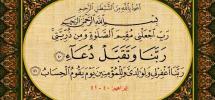 أعوذ بالله من الشيطن الرجيم
بسم الله الرحمن الرحيم
رب اجعلني مقيم الصلوة ومن ذريتي
ربنا وتقبل دعاء ٤٠
ربنا اغفر لي ولوالدي وللمؤمنين يوم يقوم الحساب ٤١
ابراهيم: ٤٠ - ٤١